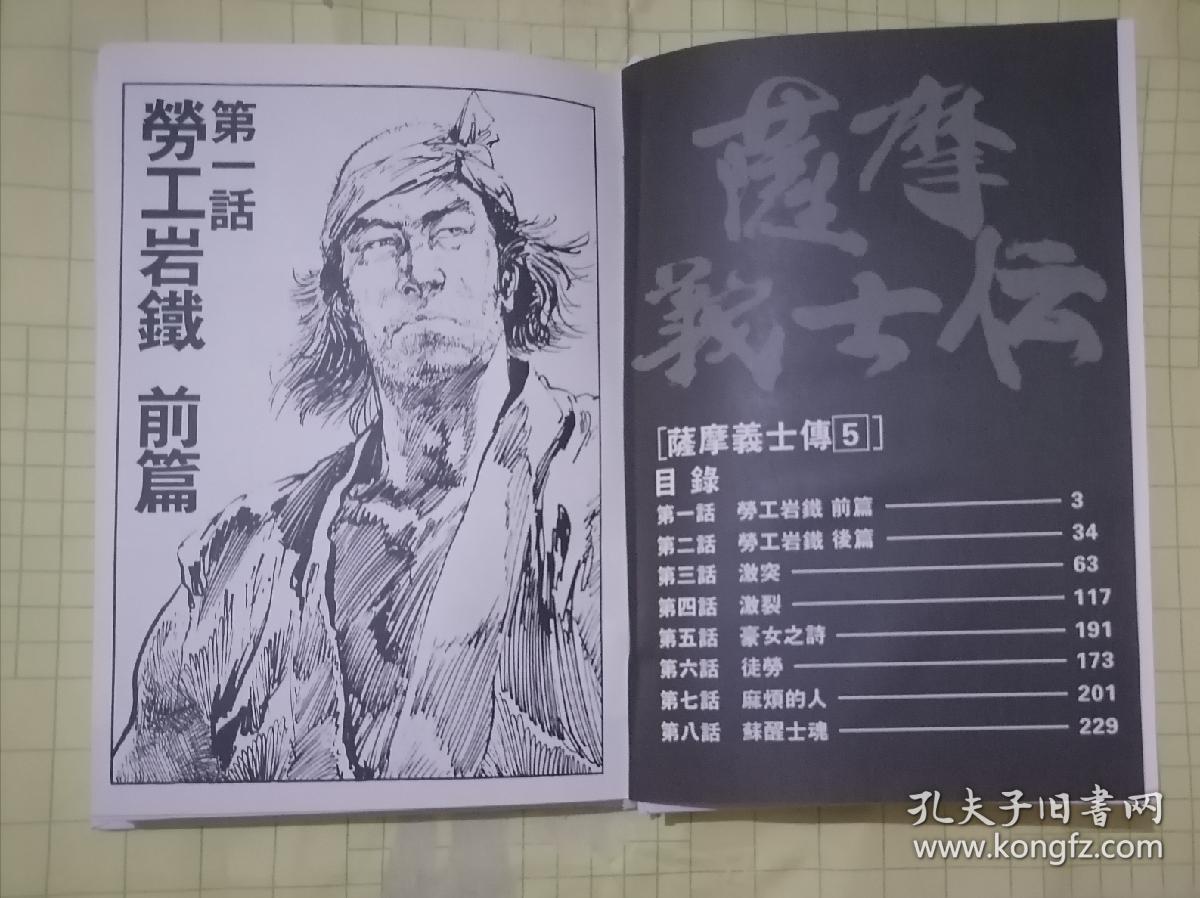 薩摩
義士伝
[薩摩義士傳5]
目錄
第一話 勞工岩鐵 前篇 3
第二話 勞工岩鐵 後篇 34
第三話 激突 63
第四話 激裂 117
第五話 豪女之詩 191
第六話 徒勞 173
第七話 麻煩的人 201
第八話 蘇醒士魂 229
第一話
勞工岩鐵 前篇
孔夫子旧书网
www.kongfz.com